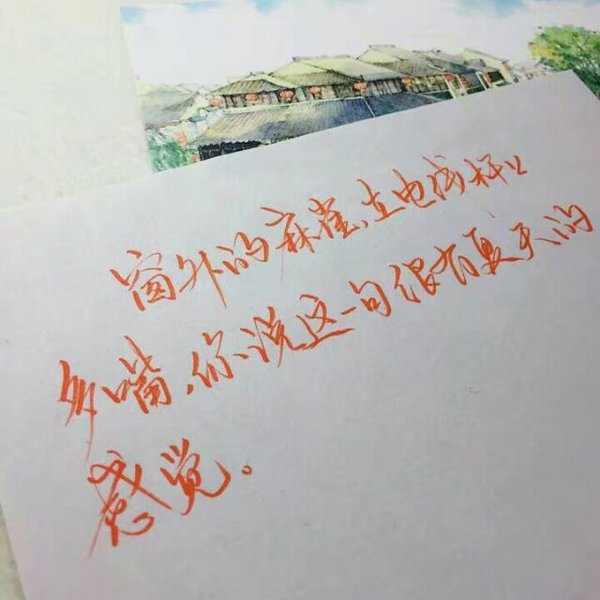 窗外的麻雀,在电线杆上
多嘴,你说这一句很有夏天的
感觉。